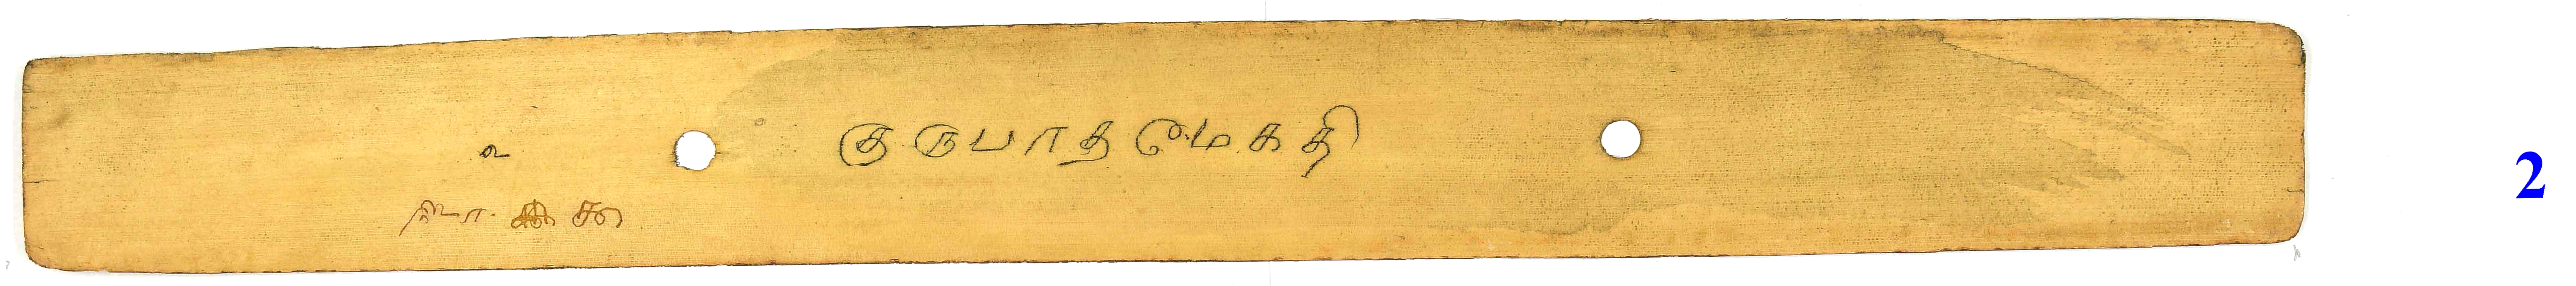 ௨ குருபாதமேகதி
2